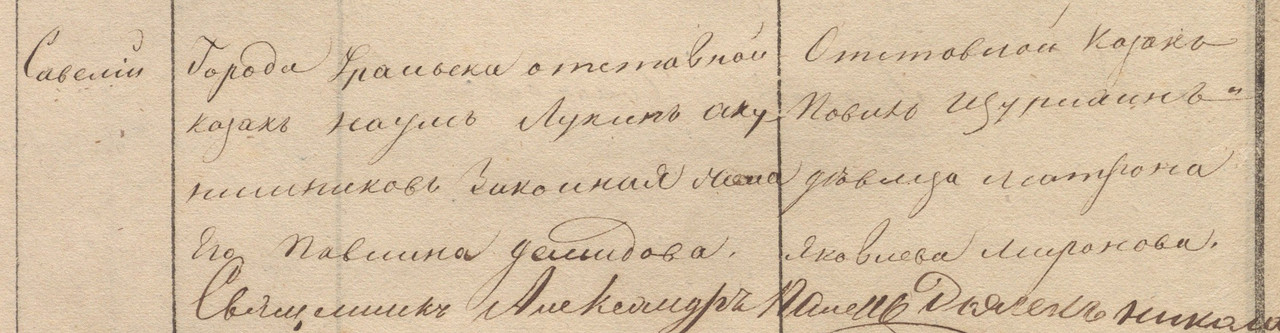 Савелій
Города Уральска отставной
казакъ Наумъ Лукинъ Аку
шниковъ Законная жена
Его Павлина Демидова.
Отставной Казакъ
Шурыгинъ
дѣвица Матрона
Яковлева Миронова.
Священникъ Александръ Дьячекъ